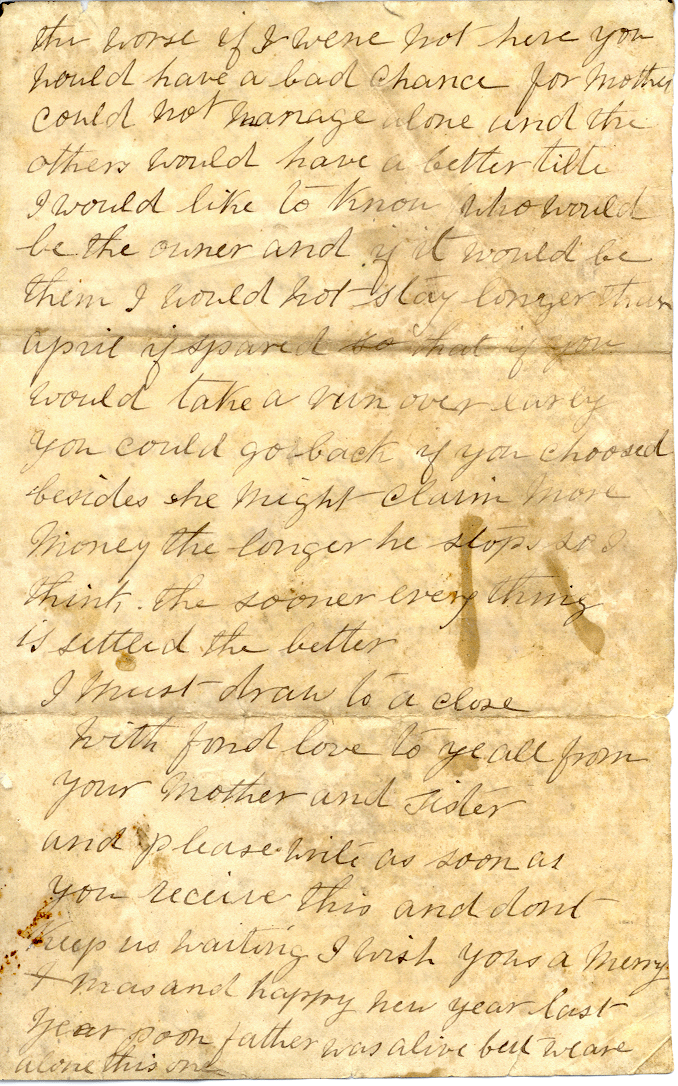 the worse if I were not here you
would have a bad chance for Mother
could not manage alone and the
others would have a better title
I would like to know who would
be the owner and if it would be
them I would not stay longer than
april if spared so that if you
would take a run over
you could go back if you choosed
besides he might claim More
Money the longer he stops so I
think the sooner every thing
is settled the better
I must draw to a close
With fond love to ye all from
your Mother and sister
and please write as soon as
you receive this and dont
keep us waiting I wish yous a Merry
X mas and happy new year last
year poor father was alive but we are
alone this one